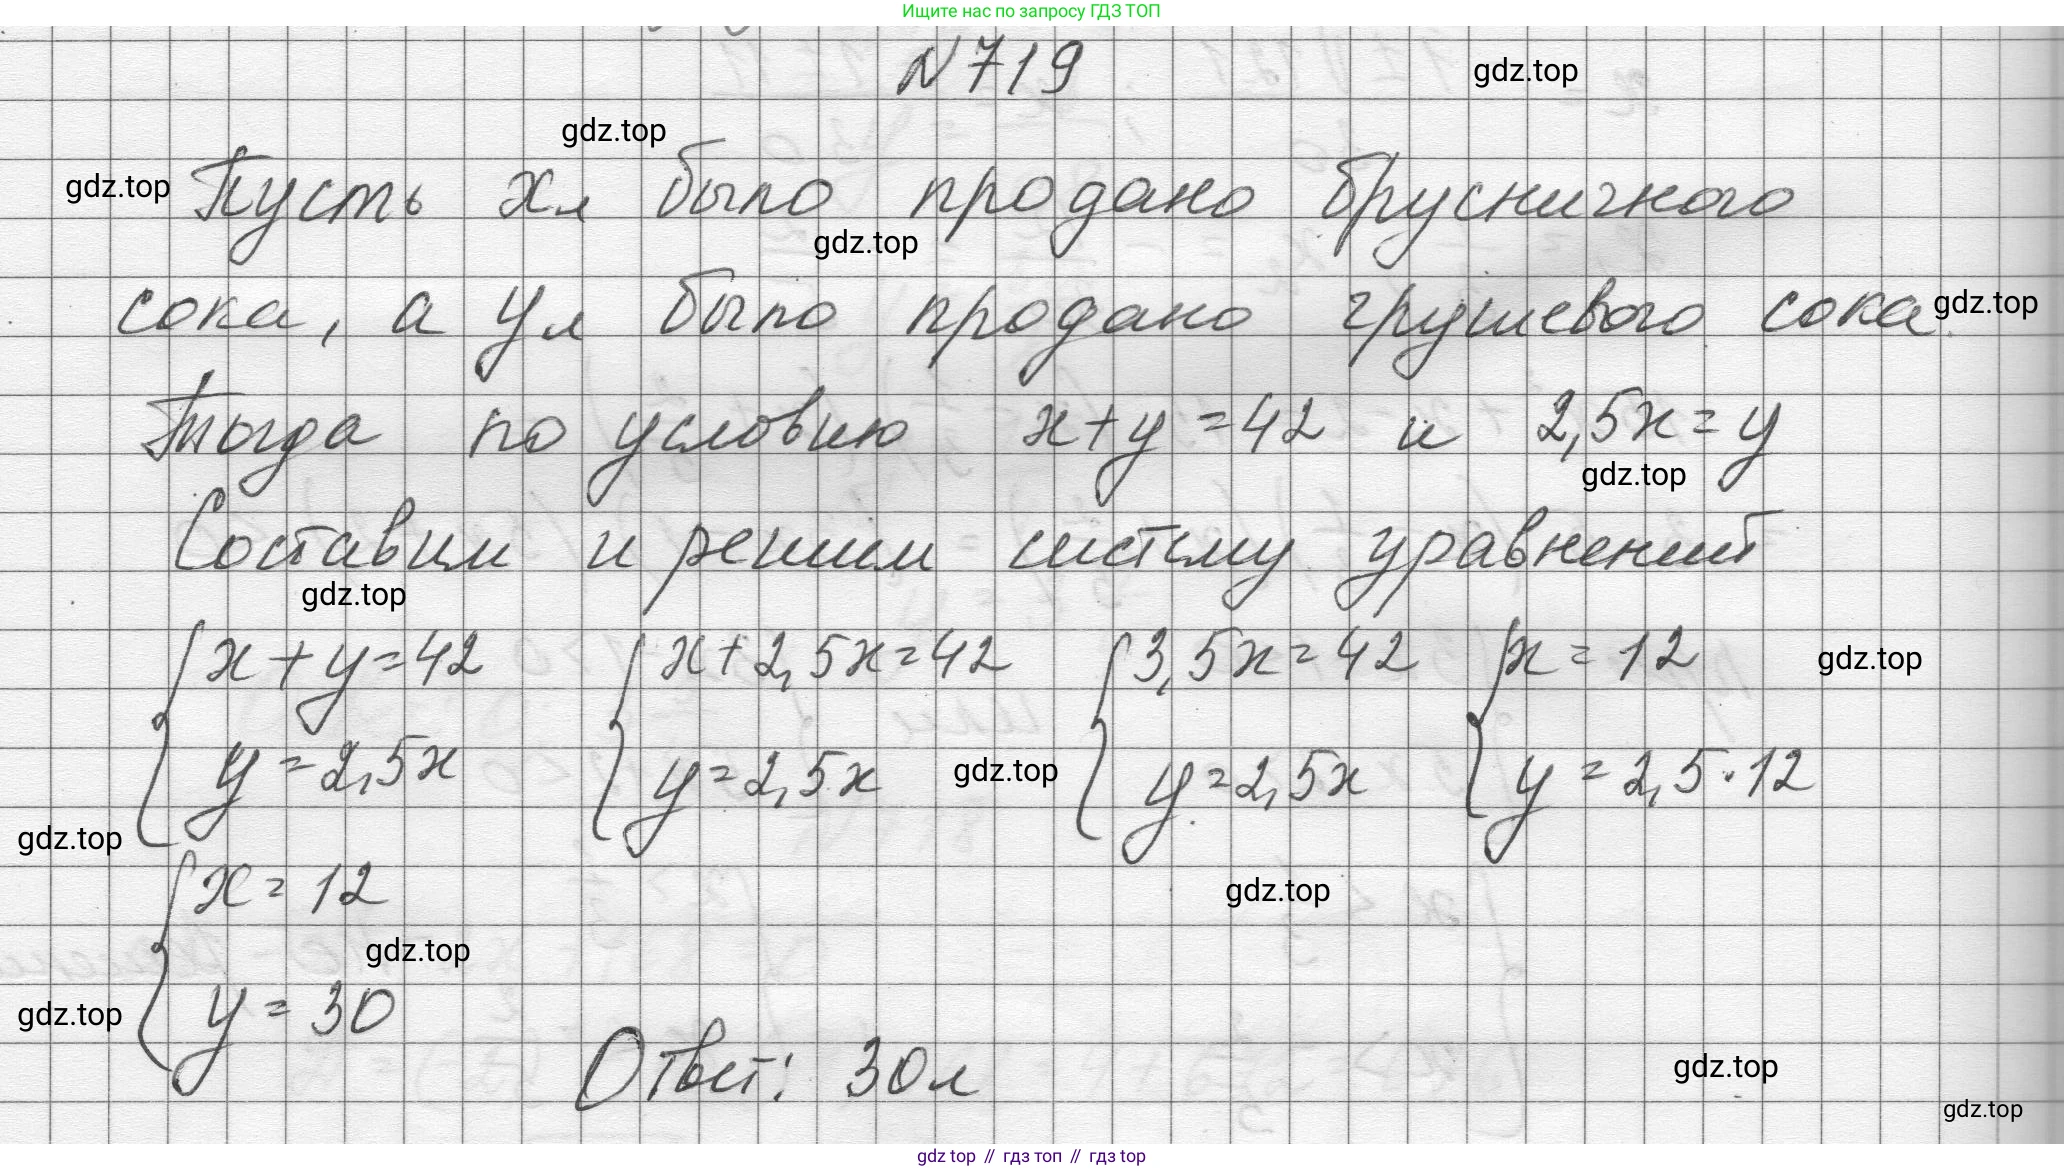 Ищите нас по запросу ГДЗ ТОП
N 719
gdz.top
gdz.top
gdz.top
Пусть x л было продано брусничного
gdz.top
сока, а y л было продано грушевого сока.
gdz.top
Тогда по условию x+y=42 и 2,5x=y
gdz.top
Составим и решим систему уравнений
gdz.top
{ x+y=42 { x+2,5x=42 { 3,5x=42 { x=12
gdz.top
y=2,5x y=2,5x y=2,5x y=2,5·12
gdz.top
gdz.top
{ x=12
gdz.top
gdz.top
y=30
gdz.top
Ответ: 30л
gdz.top
gdz.top
gdz top // гдз топ // гдз top